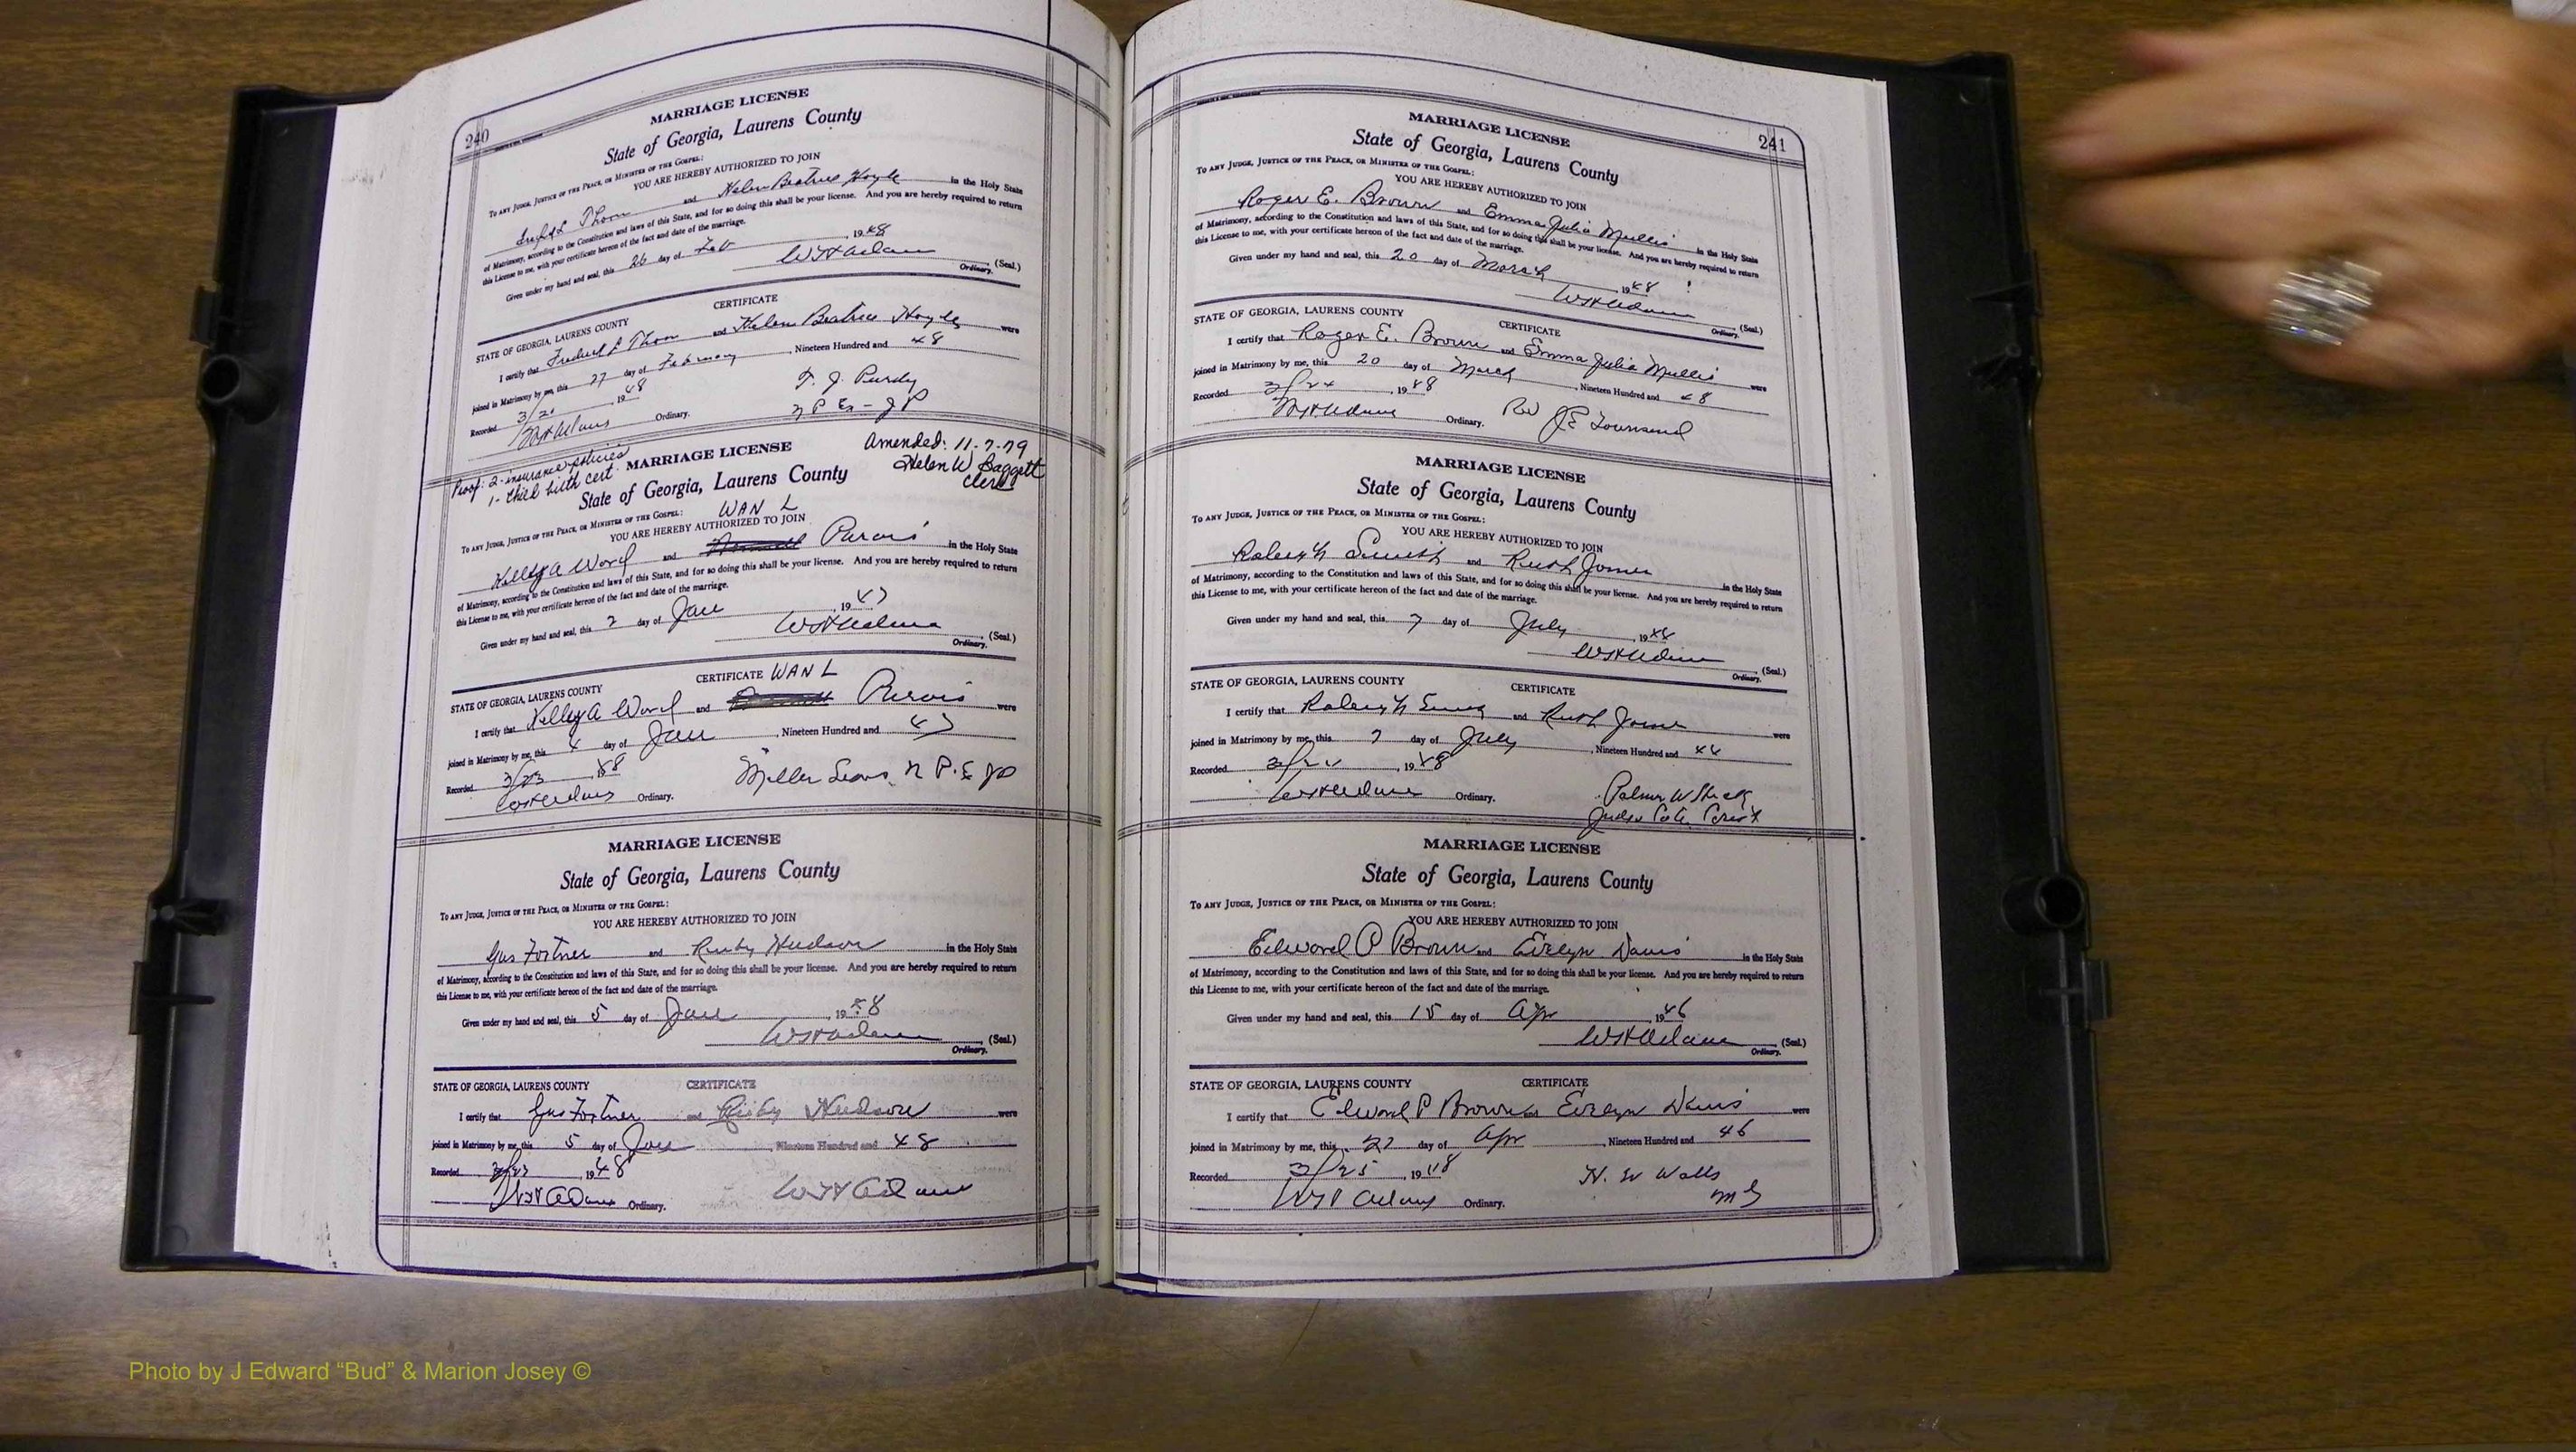 240
MARRIAGE LICENSE
State of Georgia, Laurens County
TO ANY JUDGE, JUSTICE OF THE PEACE, OR MINISTER OF THE GOSPEL:
YOU ARE HEREBY AUTHORIZED TO JOIN
Thom and Helen Beatrice Hoyle in the Holy State
of Matrimony, according to the Constitution and laws of this State, and for so doing this shall be your license. And you are hereby required to return
this License to me, with your certificate hereon of the fact and date of the marriage.
Given under my hand and seal, this 26 day of Feb, 1948
WH Adams (Seal.)
Ordinary.
CERTIFICATE
STATE OF GEORGIA, LAURENS COUNTY
I certify that Thom and Helen Beatrice Hoyle were
joined in Matrimony by me, this 27 day of February, Nineteen Hundred and 48
Recorded 3/20, 1948 T. J. Purdy
WH Adams Ordinary. JP
Proof: 2-insurance policies
1- child birth cert.
MARRIAGE LICENSE
Amended: 11-7-79
Helen W Baggett
Clerk
State of Georgia, Laurens County
TO ANY JUDGE, JUSTICE OF THE PEACE, OR MINISTER OF THE GOSPEL:
WAN L
YOU ARE HEREBY AUTHORIZED TO JOIN
Kelley A Word and Purvis in the Holy State
of Matrimony, according to the Constitution and laws of this State, and for so doing this shall be your license. And you are hereby required to return
this License to me, with your certificate hereon of the fact and date of the marriage.
Given under my hand and seal, this 2 day of Jan, 1947
WH Adams (Seal.)
Ordinary.
CERTIFICATE WAN L
STATE OF GEORGIA, LAURENS COUNTY
I certify that Kelley A Word and Purvis were
joined in Matrimony by me, this 4 day of Jan, Nineteen Hundred and 47
Recorded 3/23, 48 Miller N P. & JP
WH Adams Ordinary.
MARRIAGE LICENSE
State of Georgia, Laurens County
TO ANY JUDGE, JUSTICE OF THE PEACE, OR MINISTER OF THE GOSPEL:
YOU ARE HEREBY AUTHORIZED TO JOIN
Gus Fortner and Ruby Hudson in the Holy State
of Matrimony, according to the Constitution and laws of this State, and for so doing this shall be your license. And you are hereby required to return
this License to me, with your certificate hereon of the fact and date of the marriage.
Given under my hand and seal, this 5 day of Jan, 1948
WH Adams (Seal.)
Ordinary.
STATE OF GEORGIA, LAURENS COUNTY CERTIFICATE
I certify that Gus Fortner and Ruby Hudson were
joined in Matrimony by me, this 5 day of Jan, Nineteen Hundred and 48
Recorded 3/23, 1948
WH Adams Ordinary. WH Adams
241
MARRIAGE LICENSE
State of Georgia, Laurens County
TO ANY JUDGE, JUSTICE OF THE PEACE, OR MINISTER OF THE GOSPEL:
YOU ARE HEREBY AUTHORIZED TO JOIN
Roger E. Brown and Emma Julia Mullis in the Holy State
of Matrimony, according to the Constitution and laws of this State, and for so doing this shall be your license. And you are hereby required to return
this License to me, with your certificate hereon of the fact and date of the marriage.
Given under my hand and seal, this 20 day of March, 1948
WH Adams (Seal.)
Ordinary.
STATE OF GEORGIA, LAURENS COUNTY CERTIFICATE
I certify that Roger E. Brown and Emma Julia Mullis were
joined in Matrimony by me, this 20 day of March, Nineteen Hundred and 48
Recorded 3/24, 1948
WH Adams Ordinary. Rev J E Townsend
MARRIAGE LICENSE
State of Georgia, Laurens County
TO ANY JUDGE, JUSTICE OF THE PEACE, OR MINISTER OF THE GOSPEL:
YOU ARE HEREBY AUTHORIZED TO JOIN
Raleigh Smith and Ruth in the Holy State
of Matrimony, according to the Constitution and laws of this State, and for so doing this shall be your license. And you are hereby required to return
this License to me, with your certificate hereon of the fact and date of the marriage.
Given under my hand and seal, this 7 day of July, 19
WH Adams (Seal.)
Ordinary.
STATE OF GEORGIA, LAURENS COUNTY CERTIFICATE
I certify that Raleigh Smith and Ruth were
joined in Matrimony by me, this 7 day of July, Nineteen Hundred and 44
Recorded, 1948
WH Adams Ordinary. Palmer W
Judge
MARRIAGE LICENSE
State of Georgia, Laurens County
TO ANY JUDGE, JUSTICE OF THE PEACE, OR MINISTER OF THE GOSPEL:
YOU ARE HEREBY AUTHORIZED TO JOIN
Edward P Brown and Evelyn Davis in the Holy State
of Matrimony, according to the Constitution and laws of this State, and for so doing this shall be your license. And you are hereby required to return
this License to me, with your certificate hereon of the fact and date of the marriage.
Given under my hand and seal, this 15 day of Apr, 1946
WH Adams (Seal.)
Ordinary.
STATE OF GEORGIA, LAURENS COUNTY CERTIFICATE
I certify that Edward P Brown and Evelyn Davis were
joined in Matrimony by me, this day of Apr, Nineteen Hundred and 46
Recorded 3/25, 1948 H. W Walls
WH Adams Ordinary. MG
Photo by J Edward “Bud” & Marion Josey ©